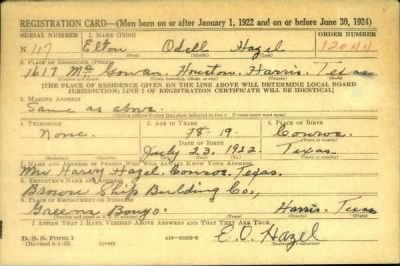 REGISTRATION CARD—(Men born on or after January 1, 1922 and on or before June 30, 1924)
SERIAL NUMBER 1. NAME (Print) ORDER NUMBER
N 117 Elton Odell Hazel 12044
2. PLACE OF RESIDENCE (Print)
1617 McGowan, Houston, Harris, Texas
(THE PLACE OF RESIDENCE GIVEN ON THE LINE ABOVE WILL DETERMINE LOCAL BOARD
JURISDICTION; LINE 2 OF REGISTRATION CERTIFICATE WILL BE IDENTICAL)
3. MAILING ADDRESS
Same as above.
4. TELEPHONE 5. AGE IN YEARS 6. PLACE OF BIRTH
None. 19. Conroe,
DATE OF BIRTH
July 23, 1922. Texas
7. NAME AND ADDRESS OF PERSON WHO WILL ALWAYS KNOW YOUR ADDRESS
Mrs Harry Hazel, Conroe, Texas
8. EMPLOYER'S NAME AND ADDRESS
Brown Ship Building Co.,
9. PLACE OF EMPLOYMENT OR BUSINESS
Greens Harris, Texas
I AFFIRM THAT I HAVE VERIFIED ABOVE ANSWERS AND THAT THEY ARE TRUE.
D. S. S. Form 1
E. O. Hazel